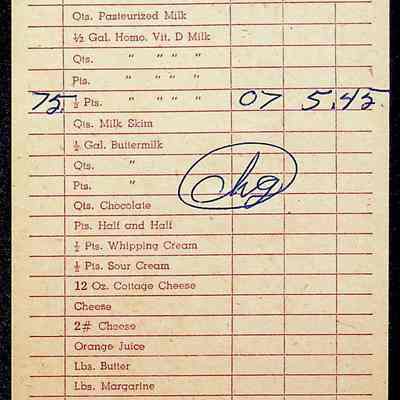 Qts. Pasteurized Milk
½ Gal. Homo. Vit. D Milk
Qts. " " " "
Pts. " " " "
75. ½ Pts. " " " " 07 5.45
Qts. Milk Skim
½ Gal. Buttermilk
Qts. "
Pts. "
chg
Qts. Chocolate
Pts. Half and Half
½ Pts. Whipping Cream
½ Pts. Sour Cream
12 Oz. Cottage Cheese
Cheese
2# Cheese
Orange Juice
Lbs. Butter
Lbs. Margarine